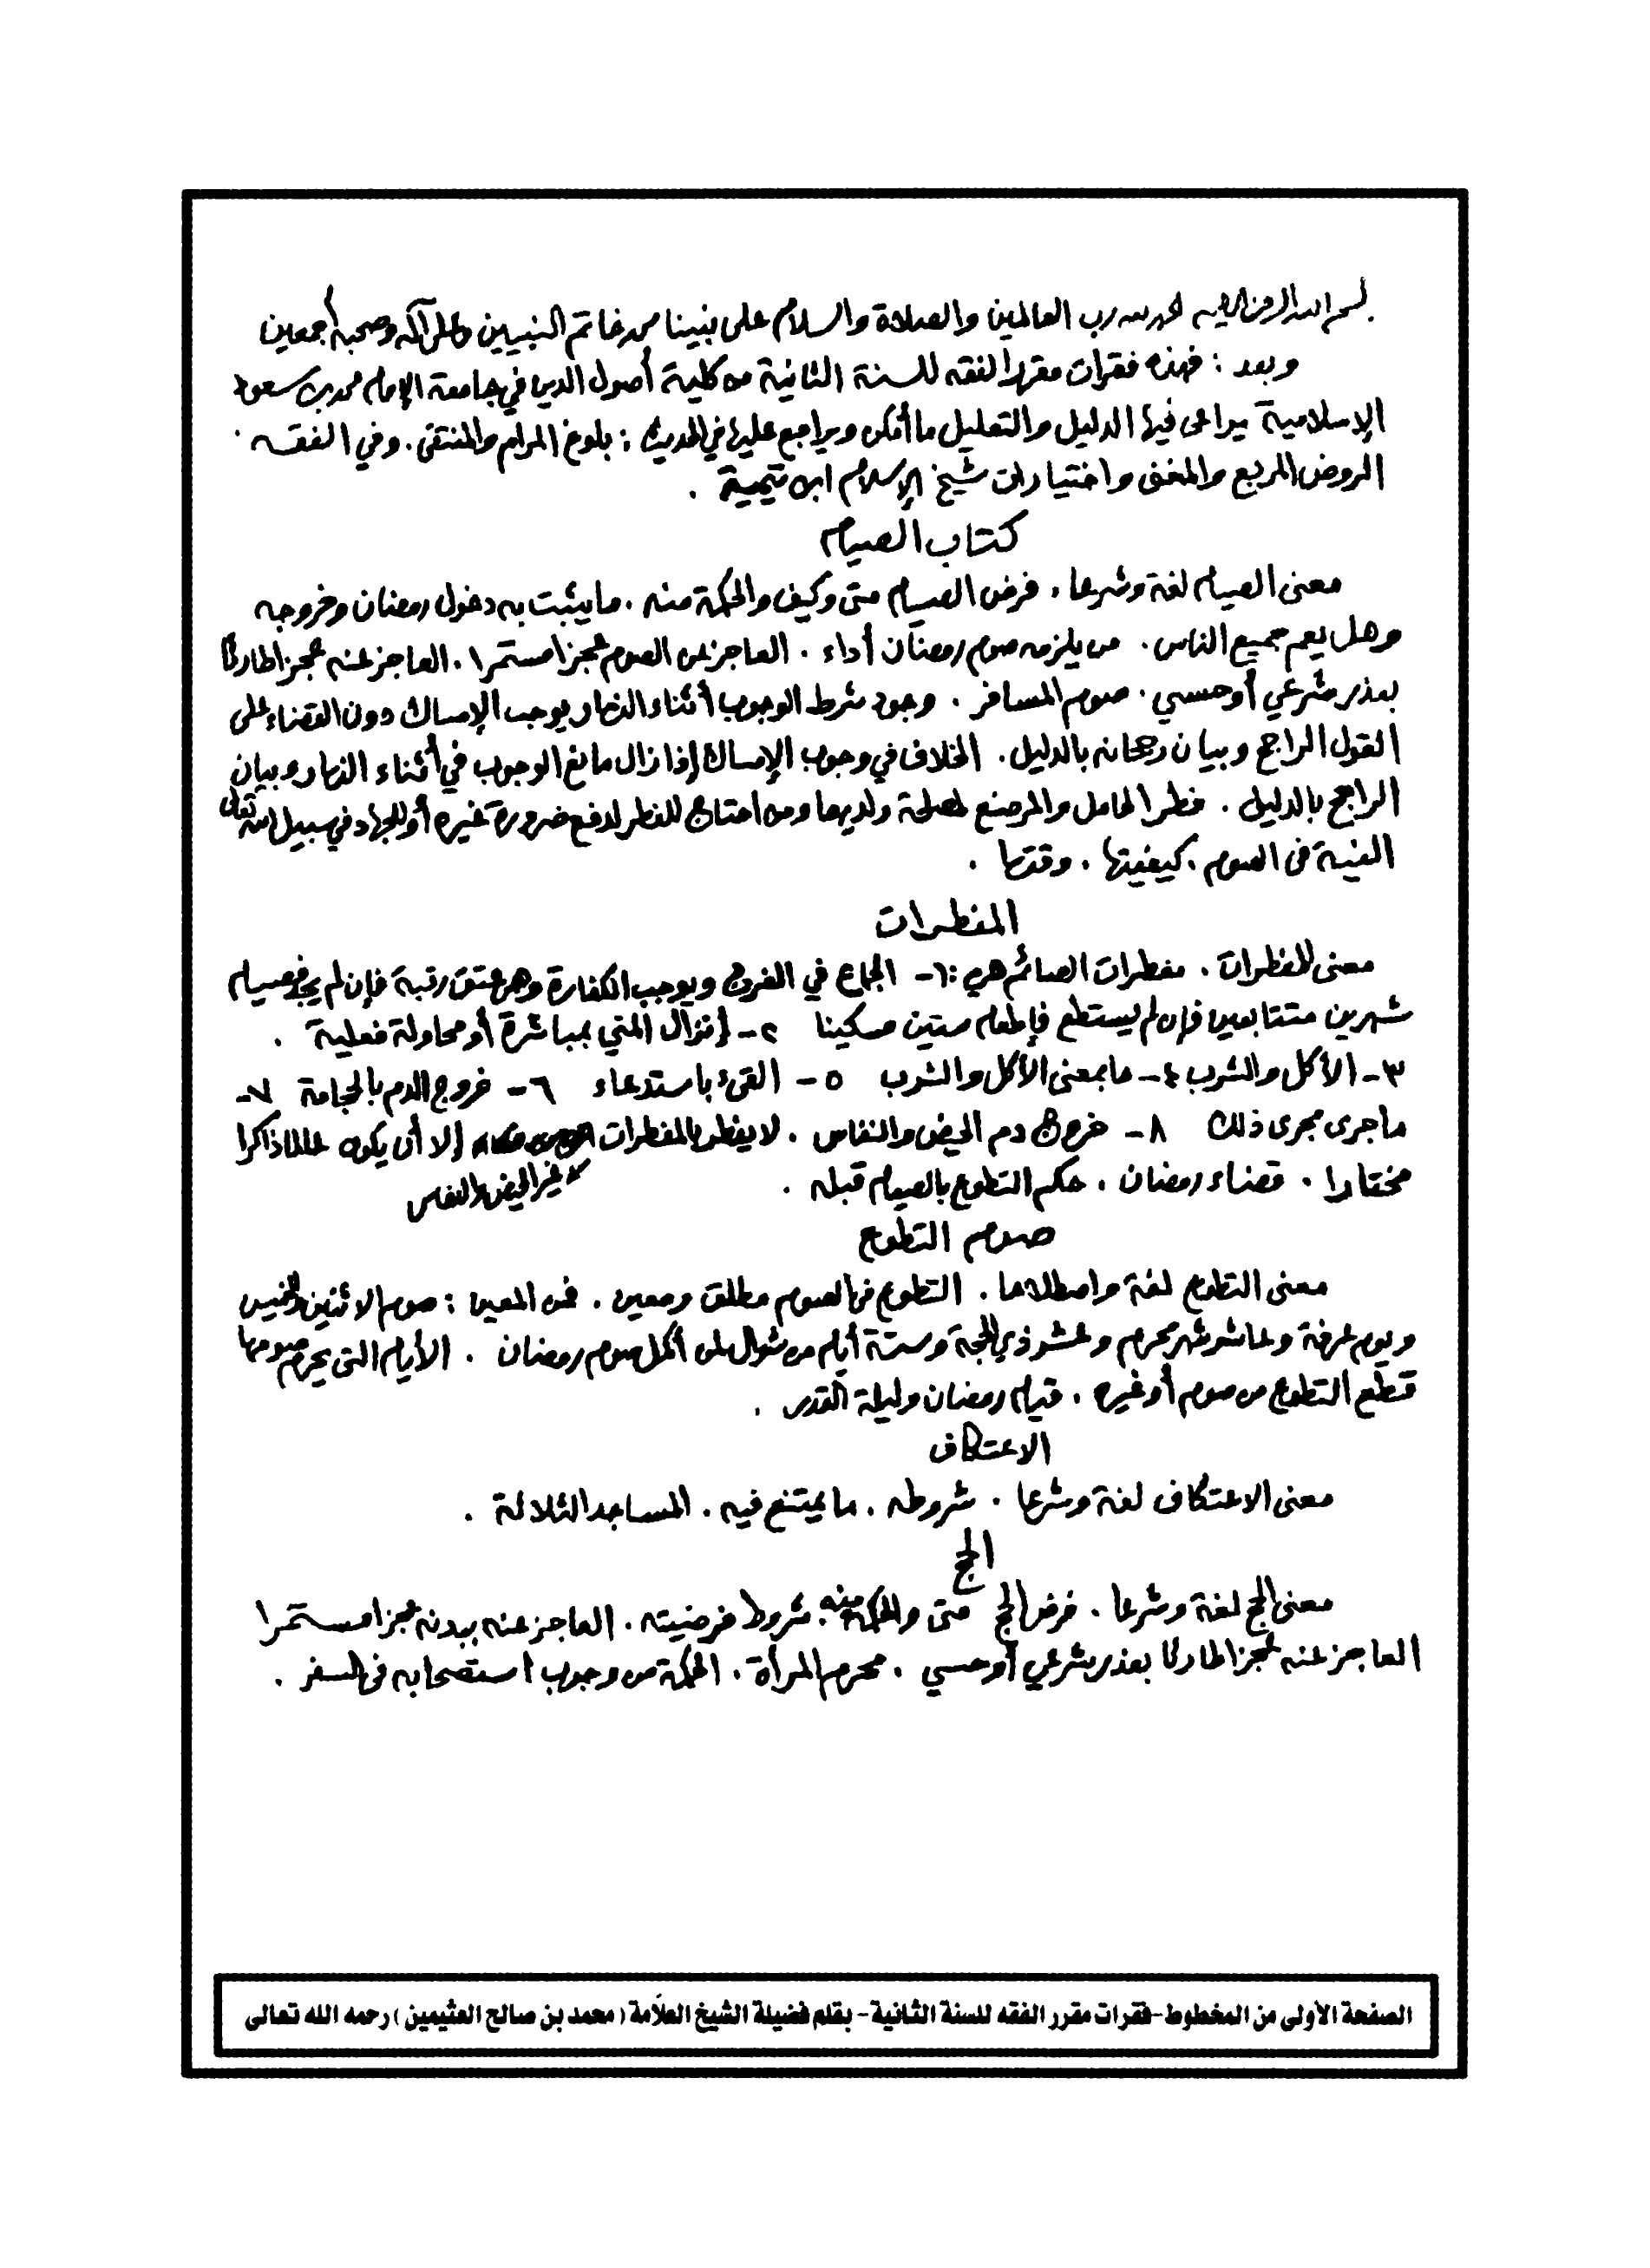 بسم الله الرحمن الرحيم الحمد لله رب العالمين والصلاة والسلام على نبينا محمد خاتم النبيين وعلى آله وصحبه أجمعين
وبعد : فهذه فقرات مقرر الفقه للسنة الثانية من كلية أصول الدين في جامعة الإمام محمد بن سعود
الإسلامية يراعى فيها الدليل والتعليل ما أمكن ويراجع عليها في الحديث : بلوغ المرام والمنتقى . وفي الفقه .
الروض المربع والمغني واختيارات شيخ الإسلام ابن تيمية .
كتاب الصيام
معنى الصيام لغة وشرعا . فرض الصيام متى وكيف والحكمة منه . ما يثبت به دخول رمضان وخروجه
وهل يعم جميع الناس . من يلزمه صوم رمضان أداء . العاجز عن الصوم عجزا مستمرا . العاجز عنه عجزا طارئا
بعذر شرعي أو حسي . صوم المسافر . وجود شرط الوجوب أثناء النهار يوجب الإمساك دون القضاء على
القول الراجح وبيان رجحانه بالدليل . الخلاف في وجوب الإمساك إذا زال مانع الوجوب في أثناء النهار وبيان
الراجح بالدليل . فطر الحامل والمرضع لمصلحة ولديهما ومن احتاج للفطر لدفع ضرورة غيره أو للجهاد في سبيل الله تعالى
النية في الصوم . كيفيتها . وقتها .
المفطرات
معنى المفطرات . مفطرات الصائم هي : ١- الجماع في الفرج ويوجب الكفارة وهي عتق رقبة فإن لم يجد فصيام
شهرين متتابعين فإن لم يستطع فإطعام ستين مسكينا ٢- إنزال المني بمباشرة أو محاولة فعلية .
٣- الأكل والشرب ٤- ما بمعنى الأكل والشرب ٥- القيء باستدعاء ٦- خروج الدم بالحجامة ٧-
ما جرى مجرى ذلك ٨- خروج دم الحيض والنفاس . لا يفطر بالمفطرات إلا أن يكون عالما ذاكرا
مختارا . قضاء رمضان . حكم التطوع بالصيام قبله .
غير الحيض والنفاس
صوم التطوع
معنى التطوع لغة واصطلاحا . التطوع في الصوم مطلق ومعين . فمن المعين : صوم الاثنين والخميس
ويوم عرفة وعاشر شهر محرم وعشر ذي الحجة وستة أيام من شوال لمن أكمل صوم رمضان . الأيام التي يحرم صومها
قطع التطوع من صوم أو غيره . قيام رمضان وليلة القدر .
الاعتكاف
معنى الاعتكاف لغة وشرعا . شروطه . ما يمتنع فيه . المساجد الثلاثة .
الحج
معنى الحج لغة وشرعا . فرض الحج متى والحكمة منه . شروط فرضيته . العاجز عنه ببدنه عجزا مستمرا
العاجز عنه عجزا طارئا بعذر شرعي أو حسي . محرم المرأة . الحكمة من وجوب استصحابه في السفر .
الصفحة الأولى من المخطوط-فقرات مقرر الفقه للسنة الثانية- بقلم فضيلة الشيخ العلّامة (محمد بن صالح العثيمين) رحمه الله تعالى